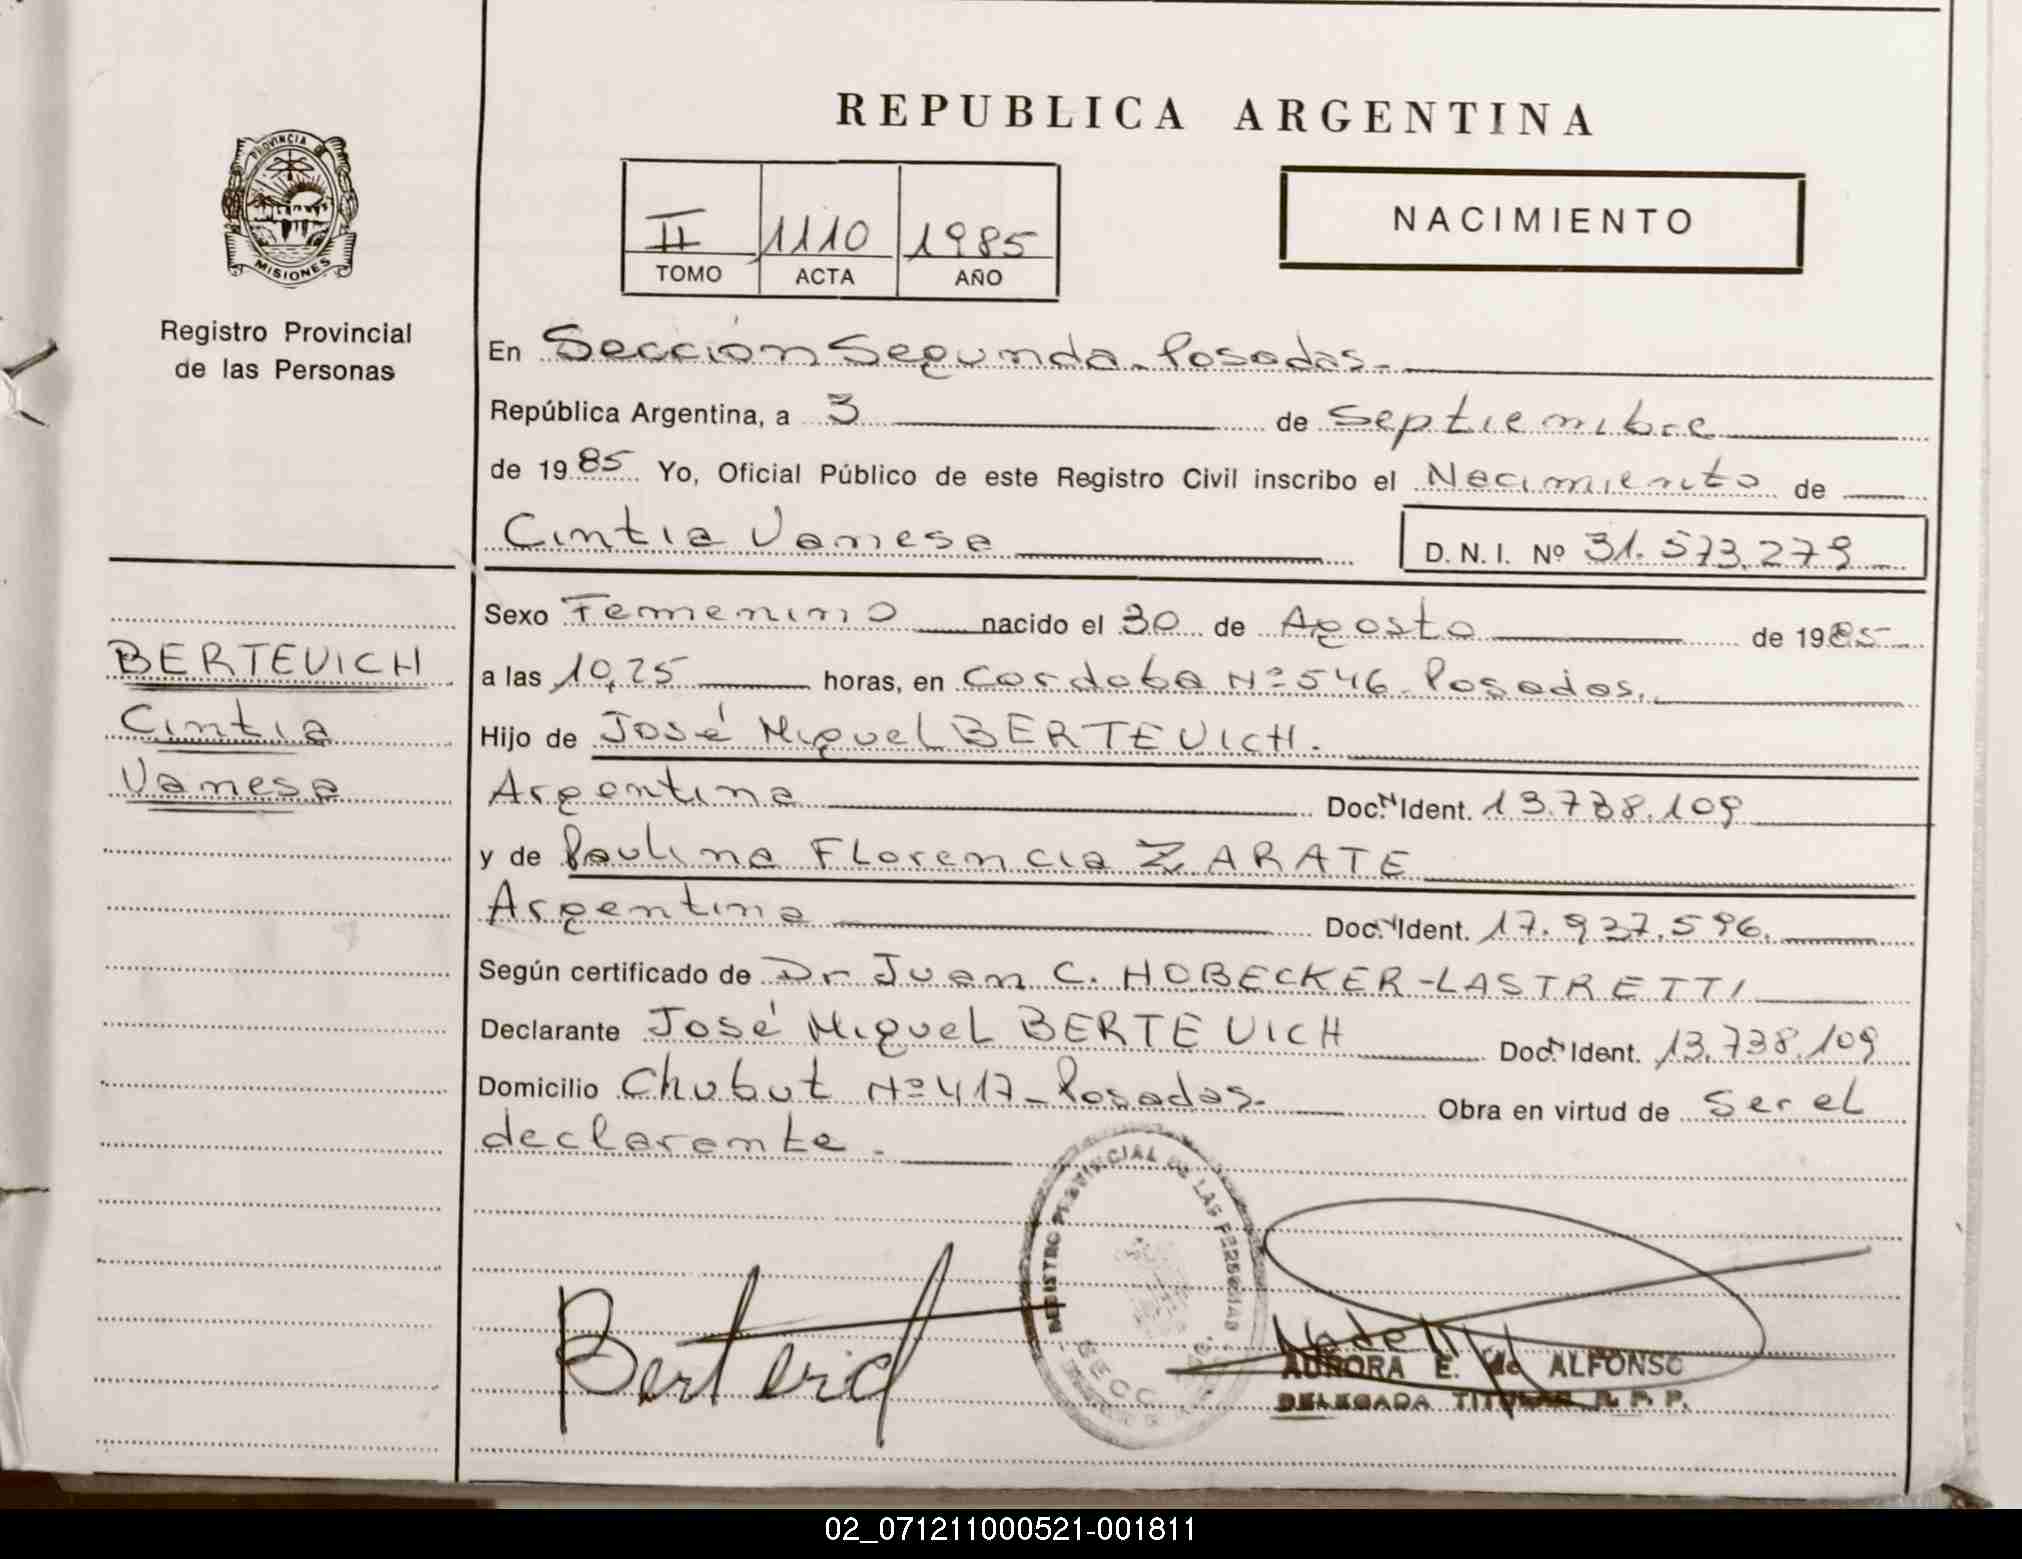 REPUBLICA ARGENTINA
PROVINCIA DE
MISIONES
Registro Provincial
de las Personas
II 1110 1985
TOMO ACTA AÑO
NACIMIENTO
En Sección Segunda - Posadas -
República Argentina, a 3 de Septiembre
de 1985 Yo, Oficial Público de este Registro Civil inscribo el Nacimiento de
Cintia Vanesa D. N. I. Nº 31.573.279
Sexo Femenino nacido el 30 de Agosto de 1985
BERTEVICH
Cintia
Vanesa
a las 10,25 horas, en Cordoba Nº 546 - Posadas.
Hijo de José Miguel BERTEVICH.
Argentina Doc. N Ident. 13.738.109
y de Paulina Florencia ZARATE
Argentina Doc. N Ident. 17.937.596.
Según certificado de Dr Juan C. HOBECKER-LASTRETTI
Declarante José Miguel BERTEVICH Doc. N Ident. 13.738.109
Domicilio Chubut Nº 417 - Posadas - Obra en virtud de ser el
declarante.
REGISTRO PROVINCIAL DE LAS PERSONAS
SECC
AURORA E. de ALFONSO
DELEGADA TITULAR R. P. P.
02_071211000521-001811